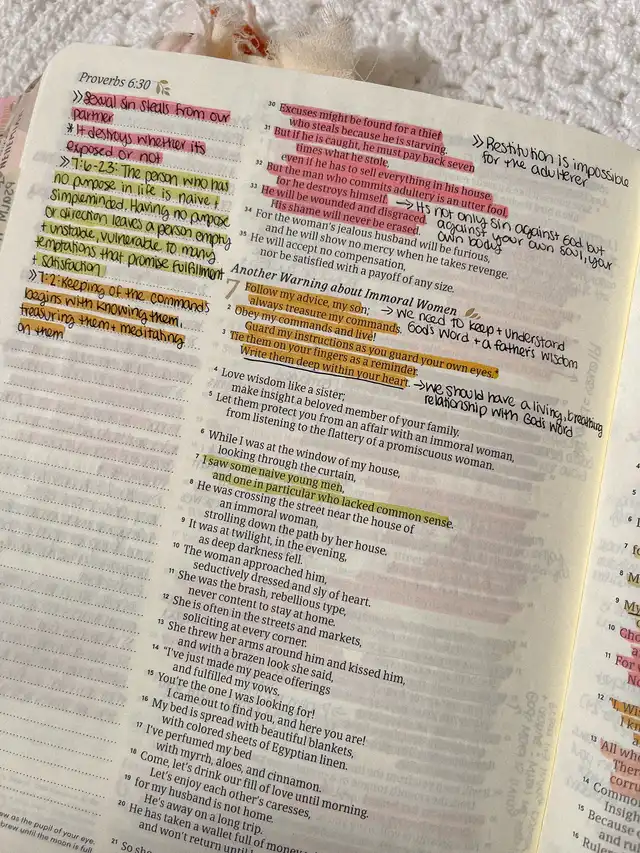 Proverbs 6:30
>> Sexual sin steals from our
partner
* It destroys whether its
exposed or not
>> 7:6-23: The person who has
no purpose in life is naive +
simpleminded. Having no purpose
or direction leaves a person empty
+ unstable, vulnerable to many
temptations that promise fulfillment
+ satisfaction
>> 7:2: Keeping of the commands
begins with knowing them,
treasuring them + meditating
on them
30 Excuses might be found for a thief
who steals because he is starving.
31 But if he is caught, he must pay back seven
times what he stole,
even if he has to sell everything in his house.
32 But the man who commits adultery is an utter fool,
for he destroys himself.
33 He will be wounded and disgraced.
His shame will never be erased.
34 For the woman's jealous husband will be furious,
and he will show no mercy when he takes revenge.
35 He will accept no compensation,
nor be satisfied with a payoff of any size.
>> Restitution is impossible
for the adulterer
→ Its not only sin against God but
against your own soul, your
own body
Another Warning about Immoral Women
7 Follow my advice, my son;
always treasure my commands.
2 Obey my commands and live!
Guard my instructions as you guard your own eyes.*
3 Tie them on your fingers as a reminder.
Write them deep within your heart.
→ we need to keep + understand
God's Word + a father's wisdom
→ we should have a living, breathing
relationship with God's Word
4 Love wisdom like a sister;
make insight a beloved member of your family.
5 Let them protect you from an affair with an immoral woman,
from listening to the flattery of a promiscuous woman.
6 While I was at the window of my house,
looking through the curtain,
7 I saw some naive young men,
and one in particular who lacked common sense.
8 He was crossing the street near the house of
an immoral woman,
strolling down the path by her house.
9 It was at twilight, in the evening,
as deep darkness fell.
10 The woman approached him,
seductively dressed and sly of heart.
11 She was the brash, rebellious type,
never content to stay at home.
12 She is often in the streets and markets,
soliciting at every corner.
13 She threw her arms around him and kissed him,
and with a brazen look she said,
14 "I've just made my peace offerings
and fulfilled my vows.
15 You're the one I was looking for!
I came out to find you, and here you are!
16 My bed is spread with beautiful blankets,
with colored sheets of Egyptian linen.
17 I've perfumed my bed
with myrrh, aloes, and cinnamon.
18 Come, let's drink our fill of love until morning.
Let's enjoy each other's caresses,
19 for my husband is not home.
He's away on a long trip.
20 He has taken a wallet full of money
and won't return until
21 So she
as the pupil of your eye.
brew until the moon is full.